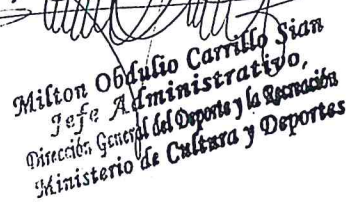 Milton Obdulio Carrillo Sian
Jefe Administrativo,
Dirección General del Deporte y la Recreación
Ministerio de Cultura y Deportes